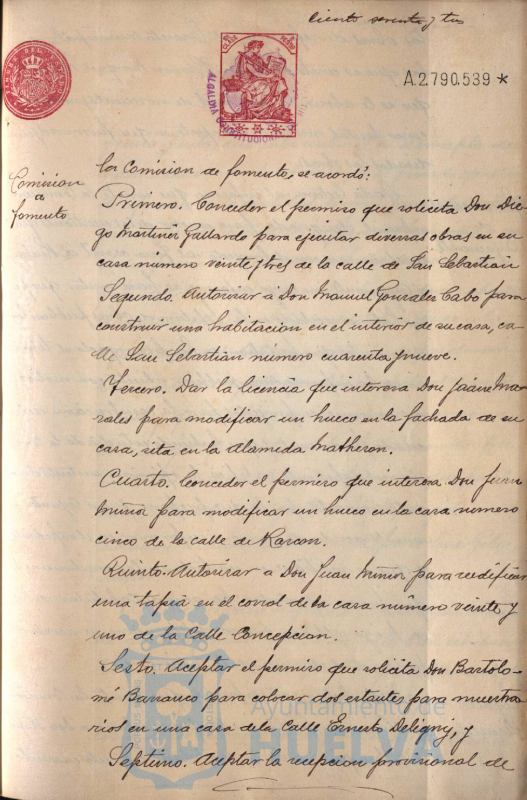 Ciento sesenta y tres
TIMBRE DEL ESTADO
CLASE
ALCALDIA CONSTITUCIONAL
A.2.790.539 *
Comision
de
fomento
la Comision de fomento, se acordó:
Primero. Conceder el permiso que solicita Don Die-
go Martinez Gallardo para ejecutar diversas obras en su
casa número veinte y tres de la calle de San Sebastian
Segundo. Autorizar á Don Manuel Gonzalez Cabo para
construir una habitacion en el interior de su casa, ca-
lle San Sebastian número cuarenta y nueve.
Tercero. Dar la licencia que interesa Don Jaime Mo-
rales para modificar un hueco en la fachada de su
casa, sita en la Alameda Matheron.
Cuarto. Conceder el permiso que interesa Don Juan
Muñoz para modificar un hueco en la casa número
cinco de la calle de Rascon.
Quinto. Autorizar a Don Juan Muñoz para reedificar
una tapia en el corral de la casa número veinte y
uno de la Calle Concepcion.
Sesto. Aceptar el permiso que solicita Don Bartolo-
mé Barranco para colocar dos estantes para muestra-
rios en una casa de la Calle Ernesto Deligny, y
Septimo. Aceptar la recepcion provisional de
Ayuntamiento de
HUELVA